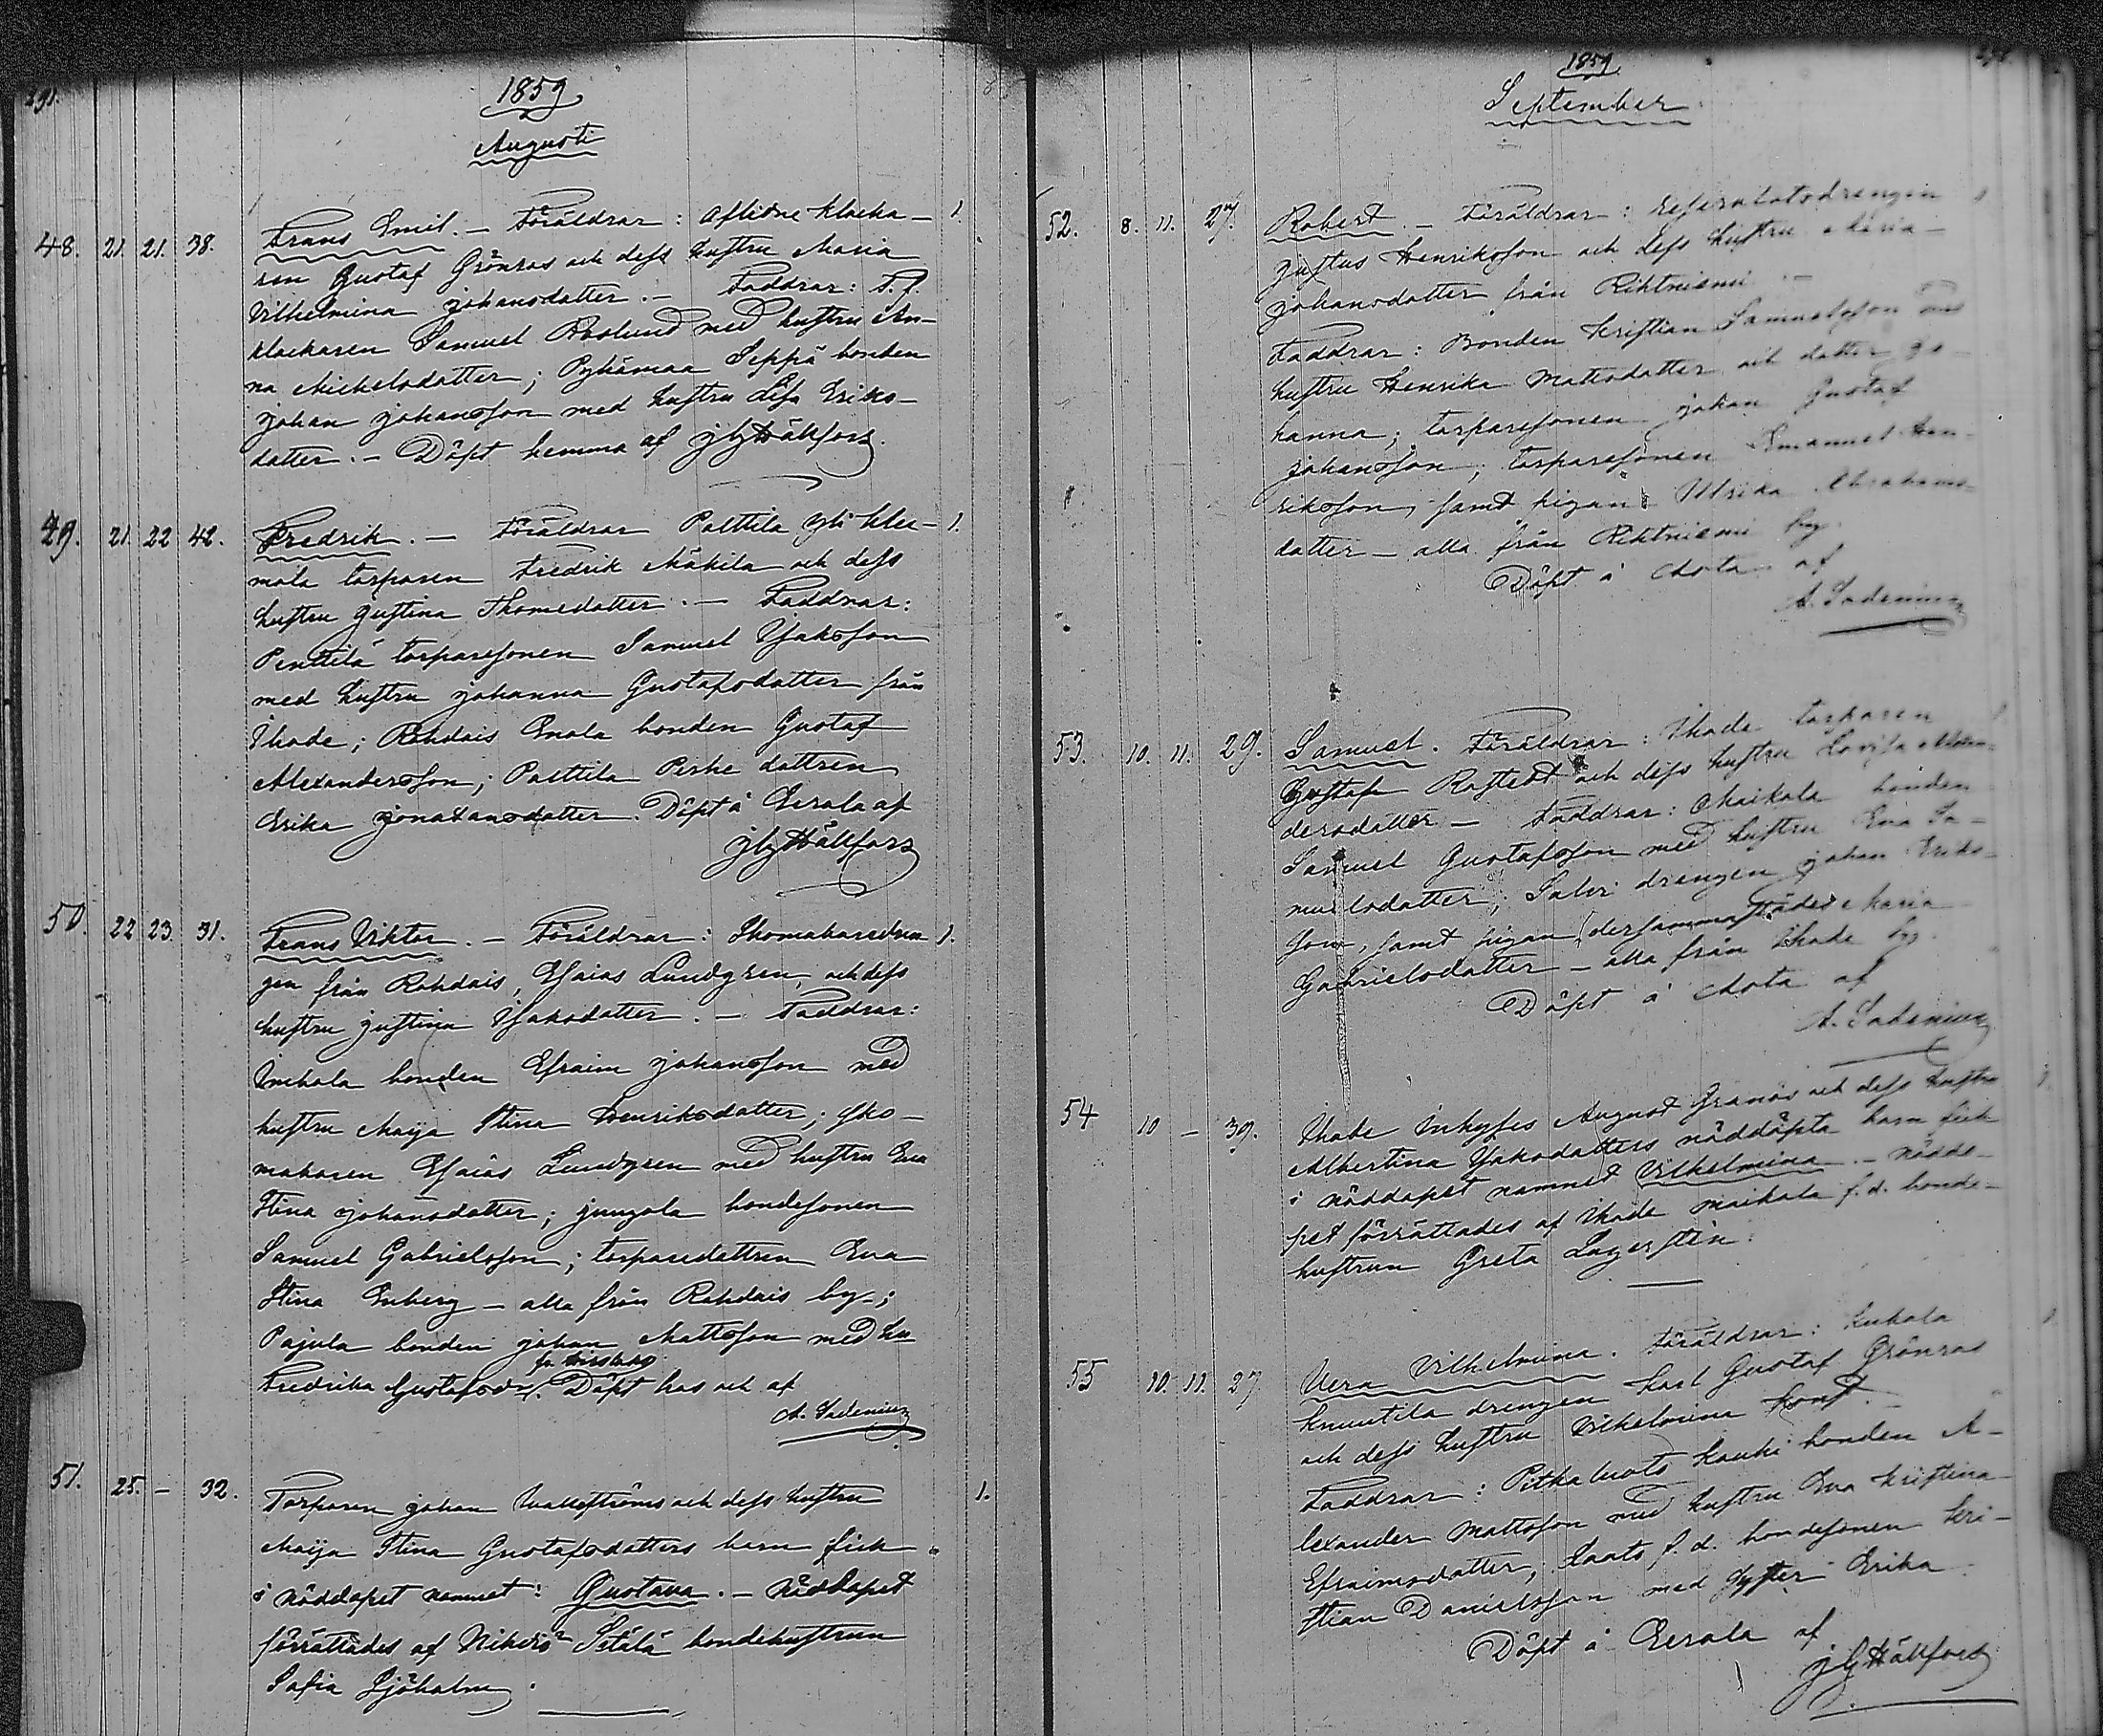 291.
1859
Augusti
48. 21. 21. 38. Frans Emil. – Föräldrar: Aflidne klocka– 1.
ren Gustaf Grönros och dess hustru Maria
Vilhelmina Johansdotter. – Faddrar: T. f.
klockaren Samuel Roslund med hustru An–
na Michelsdotter; Pyhämaa Seppä bonden
Johan Johansson med hustru Lisa Eriks–
dotter. – Döpt hemma af J G Hällfors
49. 21. 22 42. Fredrik. – Föräldrar Palttila Yli Kle– 1.
mola torparen Fredrik Mäkilä och dess
hustru Justina Thomedotter. – Faddrar:
Penttilä torparesonen Samuel Isaksson
med hustru Johanna Gustafsdotter från
Ihode; Rohdais Enola bonden Gustaf
Alexandersson; Palttila Perhe dottren
Erika Jonatansdotter. Döpt å Eerola af
J G Hällfors
50. 22 23. 31. Frans Viktor. – Föräldrar: Skomakaredren 1.
gen från Rohdais, Esaias Lundgren, och dess
hustru Justina Isaksdotter. – Faddrar:
bonden Efraim Johansson med
hustru Maija Stina Henriksdotter; sko–
makaren Esaias Lundgren med hustru Eva
Stina Johansdotter; Junnola bondesonen
Samuel Gabrielsson; torparedottren Eva
Stina Enberg – alla från Rohdais by –;
Pajula bonden Johan Mattsson med hu
Fredrika Gustafsdr. Döpt hos och af
A. Sadenius
51. 25. – 32. Torparen Johan Wallströms och dess hustru 1.
Maija Stina Gustafsdotters barn fick
i nöddopet namnet: Gustava. – Nöddopet
förrättades af Nihiö Setälä bondehustrun
Sofia Sjöholm.
1859
September
52. 8. 11. 27. Robert. – Föräldrar: Reservbåtsdrengen
Justus Henriksson och dess hustru Maria
Johansdotter från Rihtniemi. –
Faddrar: Bonden Kristian Samuelsson med
hustru Henrika Mattsdotter och dotter Jo–
hanna; torparesonen Johan Gustaf
Johansson; torparesonen Emanuel Hen–
riksson, samt pigan Ulrika Abrahams–
dotter – alla från Rihtniemi by.
Döpt å Aota af
A. Sadenius
53. 10. 11. 29. Samuel. Föräldrar: Ihode torparen
Gustaf Rostedt och dess hustru Lovisa
dersdotter – Faddrar: Maikola bonden
Samuel Gustafsson med hustru Eva Sa–
muelsdotter; Salvi drengen Johan Eriks–
son, samt pigan dersammastädes Maria
Gabrielsdotter – alla från Ihode by.
Döpt å Aota af
A. Sadenius
54 10 – 39. Ihode Inhyses August Granös och dess hustru
Albertina Isaksdotters nöddöpta barn fick
i nöddopet namnet Vilhelmina. – Nöddo–
pet förrättades af Ihode Maikola f. d. bonde–
hustrun Greta Lagersten.
55 10. 11. 27 Vera Vilhelmina. Föräldrar: Kukola
Knuutila drengen Karl Gustaf Grönros
och dess hustru Vilhelmina
Faddrar: Pitkaluoto Kauki bonden A–
lexander Mattsson med hustru Eva Kristina
Efraimsdotter; Laato f. d. bondesonen Kri–
stian Danielsson med syster Erika
Döpt å Eerola af
J G Hällfors